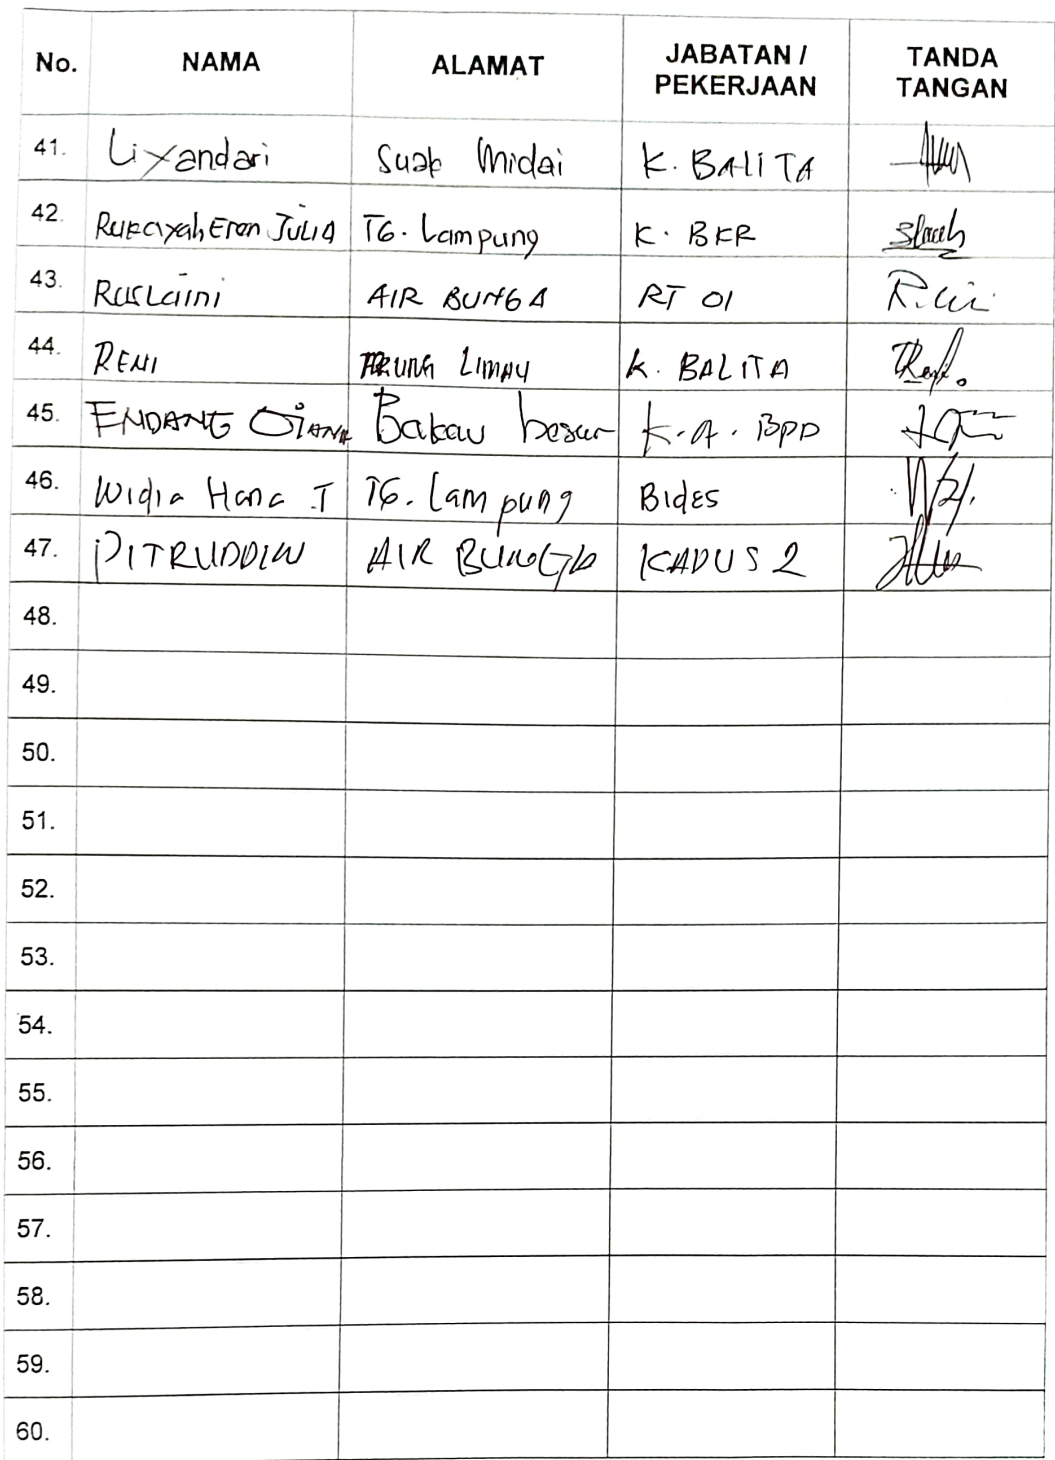 No. NAMA ALAMAT JABATAN / PEKERJAAN TANDA TANGAN
41. Liyandari Suak Midai K. BALITA
42. Rukayah Eron JULIA TG. Lampung K. BKR
43. Ruslaini AIR BUNGA RT 01
44. RENI LIMAU K. BALITA
45. ENDANG Bakau besar K.A. BPD
46. Widia Hana I TG. Lampung Bides
47. PITRUDDIN AIR BUNGA KADUS 2
48.
49.
50.
51.
52.
53.
54.
55.
56.
57.
58.
59.
60.